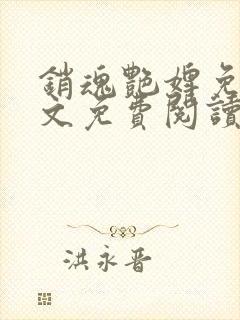 銷魂艷婢免
文免費閱讀
洪永晉